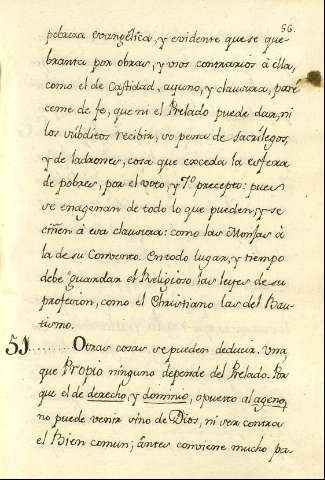 56.
pobreza evangélica, y evidente que se que-
branta por obras, y vsos contrarios à ella,
como el de Castidad, ayuno, y clausura, pare
ceme de fe, que ni el Prelado puede dar, ni
los súbditos recibir, so pena de sacrílegos,
y de ladrones, cosa que exceda la esfera
de pobres, por el voto, y 7.º precepto: pues
se enagenan de todo lo que pueden, y se
ciñen à esa clausura: como las Monjas à
la de su Convento. En todo lugar, y tiempo
debe guardar el Religioso las leyes de su
profesion, como el Christiano las del Bau-
tismo.
51 ........ Otras cosas se pueden deducir. Una,
que Propio ninguno depende del Prelado. Por
que el de derecho, y dominio, opuesto al ageno,
no puede venir sino de Dios, ni ser contra
el Bien comun; ántes conviene mucho pa-